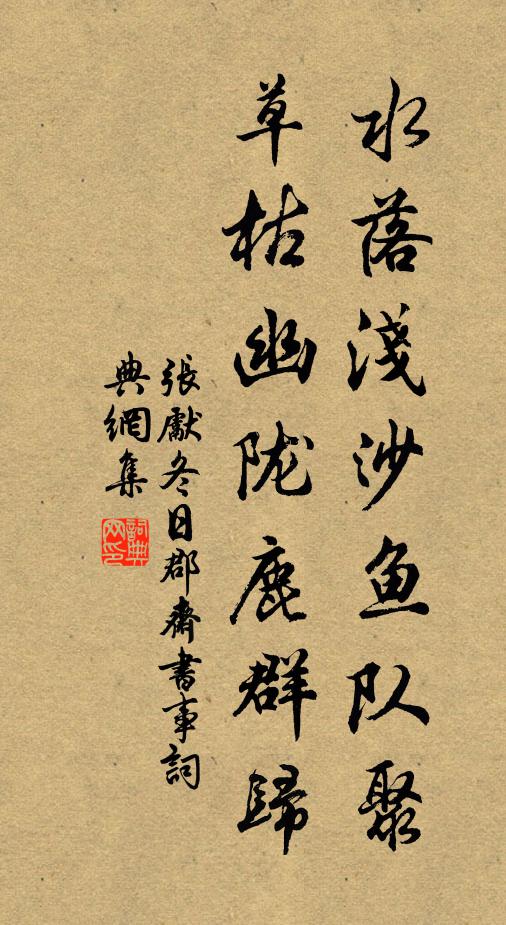 水落淺沙鱼队聚
草枯幽陇鹿群歸
張獻冬日郡齋書事詞
典網集
詞典网印